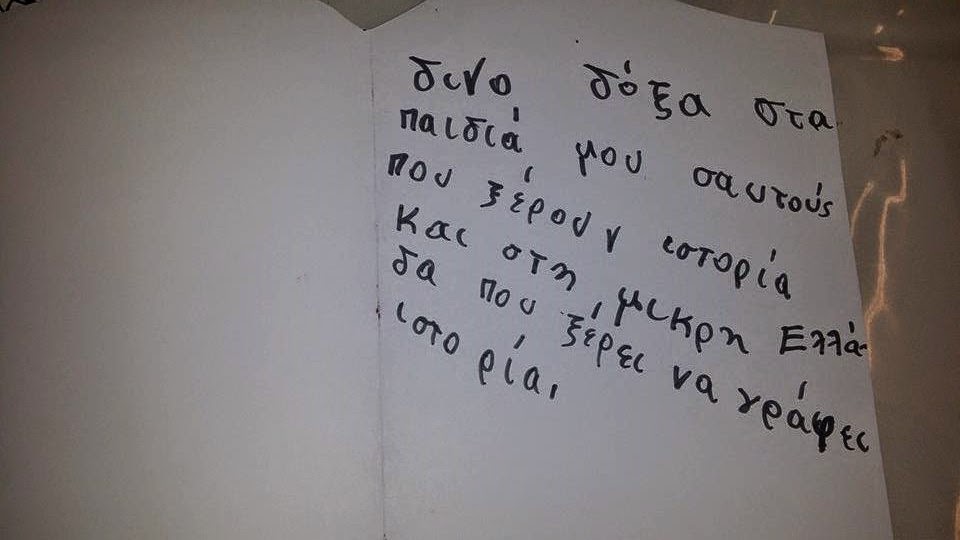 δινο δόξα στα
παιδιά μου σαυτούς
που ξέρουν ιστορία
και στη μικρη Ελλά-
δα που ξέρει να γράφει
ιστορία,